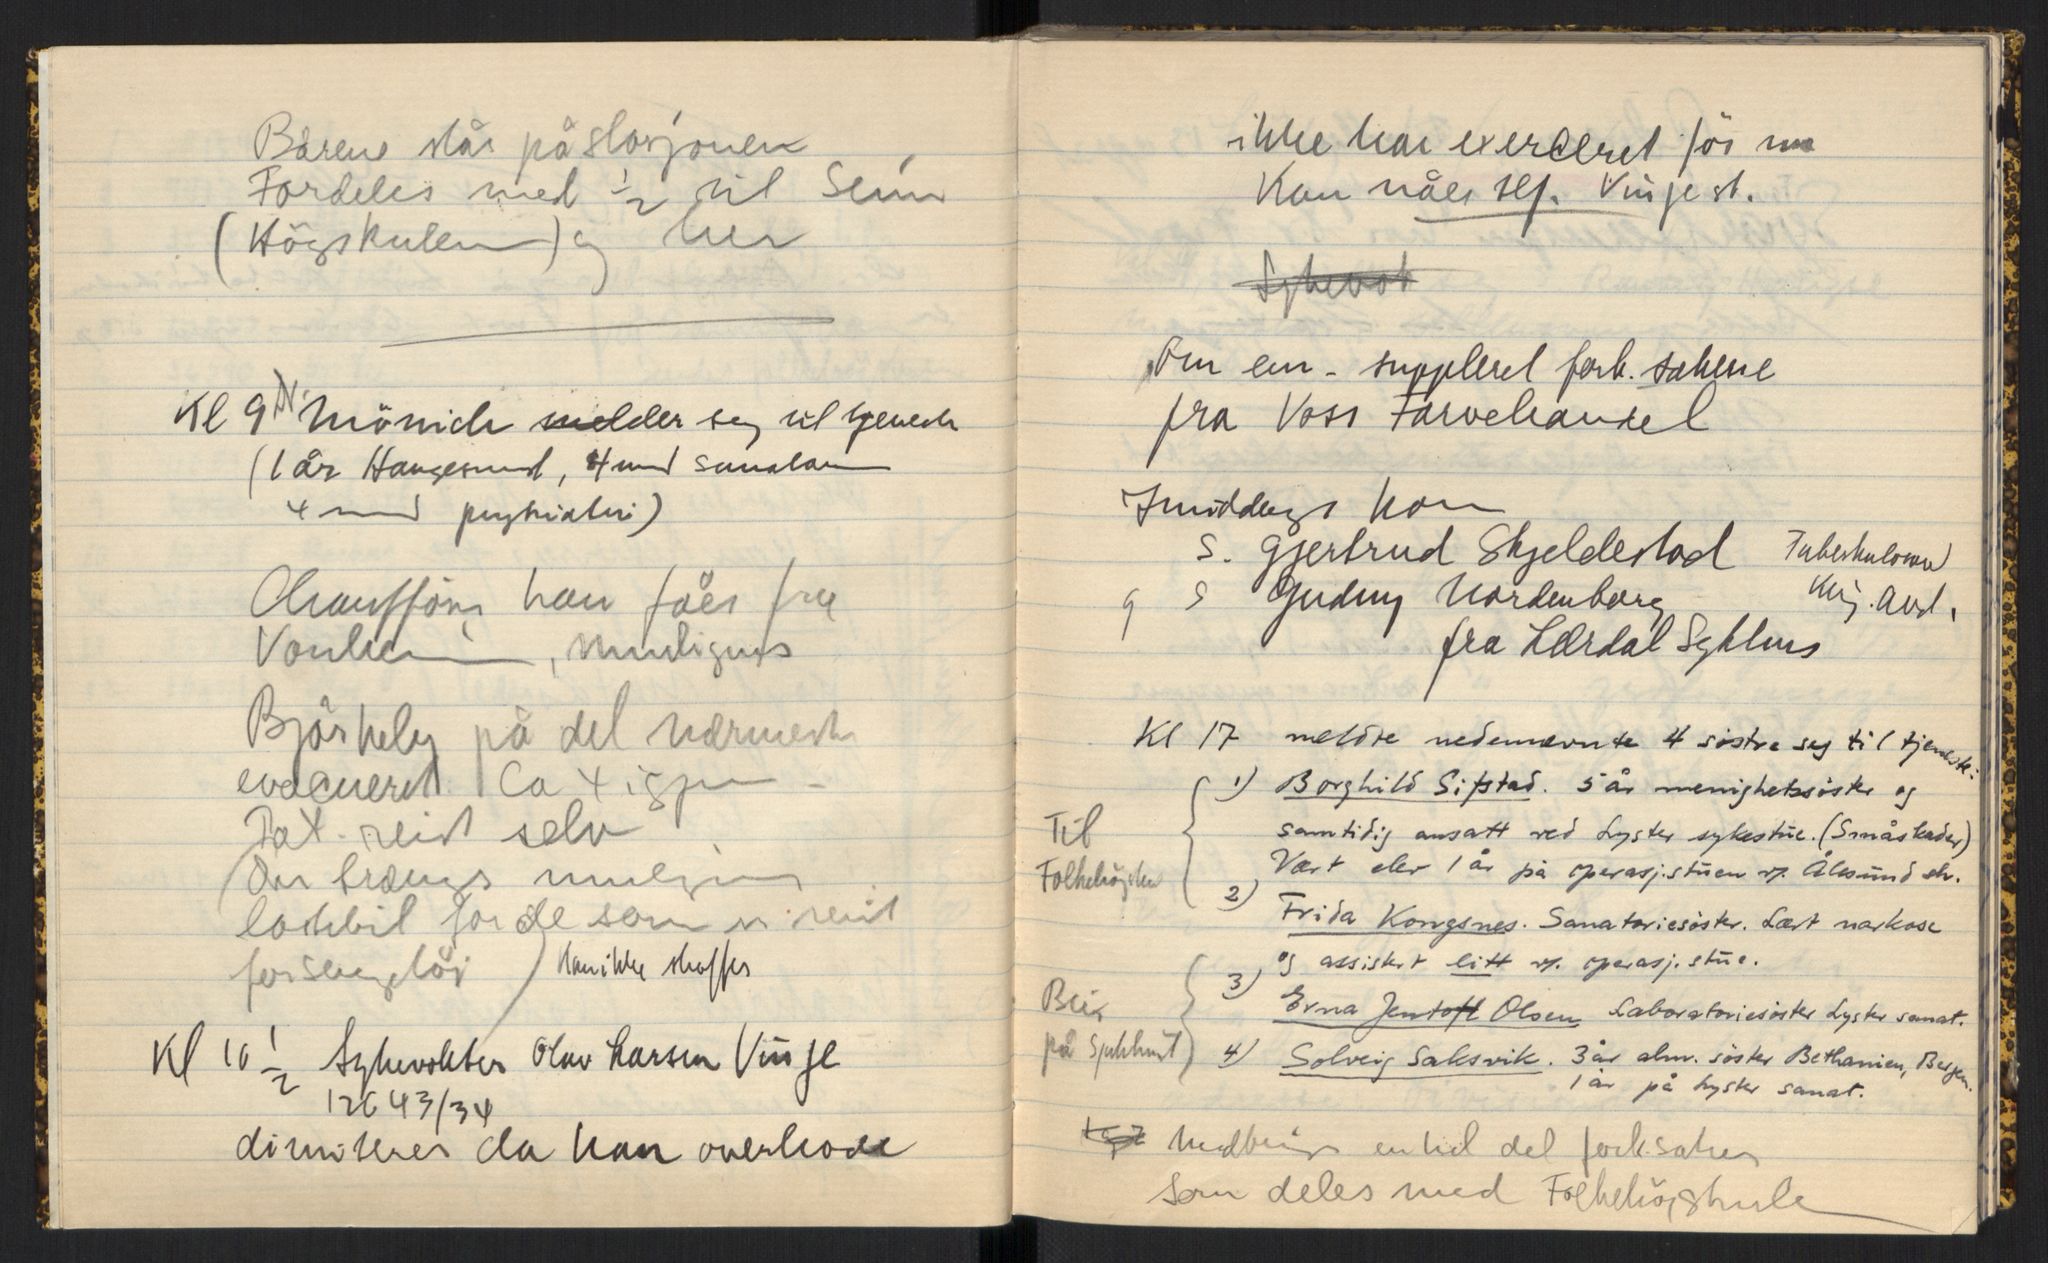 Bårene står på stasjonen
Fordeles med 1/2 til
(Högskulen) og her
Kl 9 Dr. Mönich melder seg til tjeneste
(1 år Haugesund, 4 mnd sanatorium
4 mnd psykiatri)
Chauffører kan fåes fra
Vonheim, muligens
Björkely på det nærmeste
evacueret Ca 4 igjen
Pat. reist selv
(Der trængs muligens
lastebil for de som er reist
kan ikke skaffes
Kl 10 1/2 Sykevokter Olav Larsen Vinje
12643/34
dimiteres da han overhode
ikke har exerceret før nu
Kan nåes tlf. Vinje st.
Sykevok
Om em. suppleret forb. sakene
fra Voss Farvehandel
Imiddags kom
S. Gjertrud Skjeldestad Tuberkulosen
og S Gudny Nordenborg Kir. avd.
fra Lærdal Sykhus
Kl 17 meldte nedennævnte 4 søstre seg til tjeneste:
Til
Folkehögsku
1) Borghild Sifstad. 5 år menighetssøster og
samtidig ansatt ved Lyster sykestue. (Småskader)
Vært elev 1 år på operasj.stuen v/ Ålesund sh.
2) Frida Kongsnes. Sanatoriesøster. Lært narkose
og assistert litt v/ operasj.stue.
Blir
på Sjukhust
3) Erna Jentoft Olsen. Laboratoriesøster Lyster sanat.
4) Solveig Saksvik. 3 år alm. söster Bethanien, Bergen.
1 år på Lyster sanat.
Medbrings en hel del forb.saker
som deles med Folkehögskule